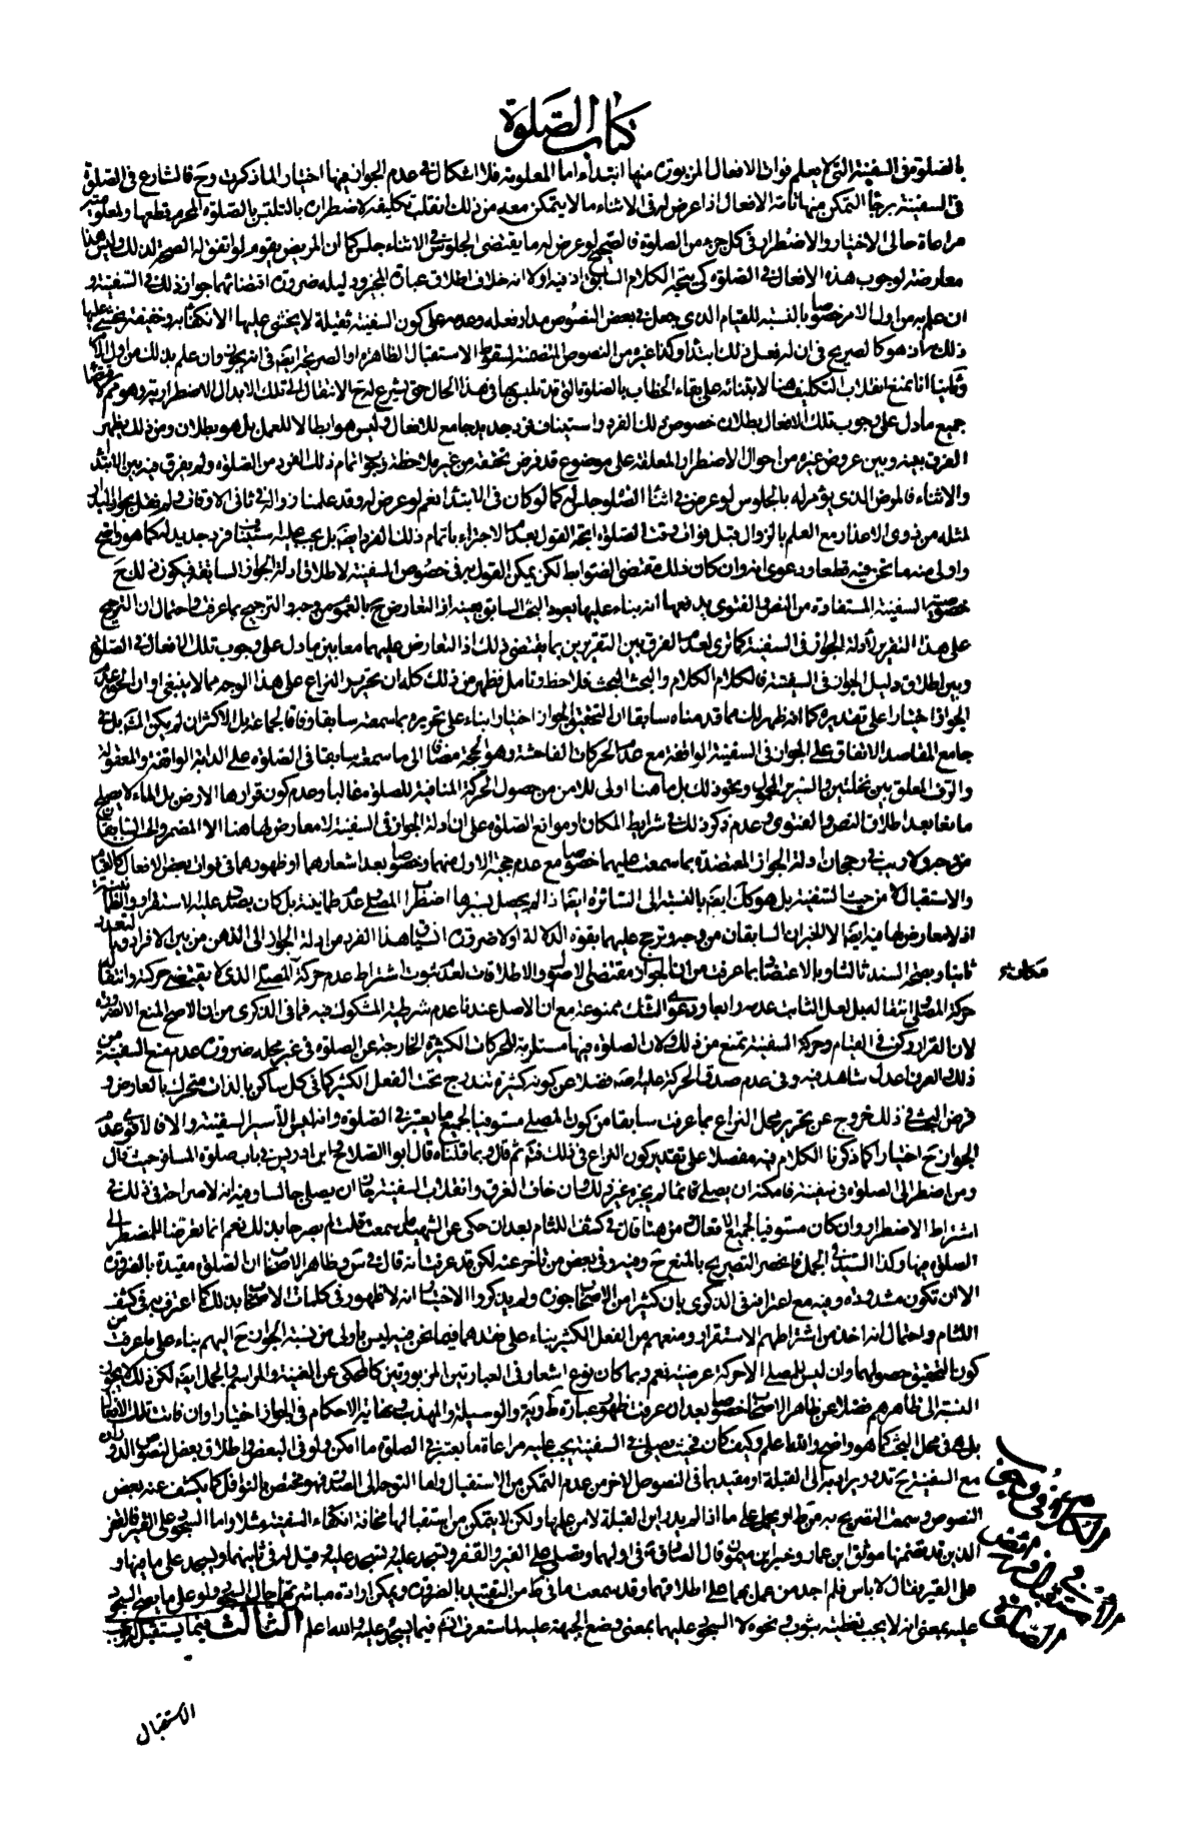 كتاب الصلوة
بالصلوة في السفينة التي لا يعلم فوات الافعال المزبورة منها ابتداء اما المعلومة فلا اشكال في عدم الجواز فيها اختيارا لما ذكرت وح فالشارع في الصلوة
في السفينة برجاء التمكن منها تامة الافعال اذا عرض له في الاثناء ما لا يتمكن معه من ذلك انقلب تكليفه لاضطراره بالتلبس بالصلوة المحرم قطعها
مراعاة حالى الاختيار والاضطرار في كل جزء من الصلوة فالصحيح لو عرض له ما يقتضى الجلوس في الاثناء جلس كما ان المريض يقوم لو اتفق له الصحة
معارضة لوجوب هذه الافعال في الصلوة كى يتجه الكلام السابق اذ فيه اولا انه خلاف اطلاق عبارة المجيز ودليله ضرورة اقتضائهما جواز ذلك في السفينة و
ان علم به من اول الامر خصوصا بالنسبة للقيام الذى جعل في بعض النصوص مدار فعله وعدمه على كون السفينة ثقيلة لا يخشى عليها الانكفاء به وخفيفة يخشى عليها
ذلك
وثانيا انا نمنع انقلاب التكليف هنا لابتنائه على بقاء الخطاب بالصلوة التى قد تلبس بها في هذا الحال حتى يشرع له ح الانتقال الى تلك الابدال الاضطرارية وهو
جميع ما دل على وجوب تلك الافعال بطلان خصوص ذلك الفرد واستيناف فرد جديد جامع للافعال وليس هو ابطالا للعمل بل هو بطلان ومن ذلك يظهر
الفرق بينه وبين عروض غيره من احوال الاضطرار المعلقة على موضوع قد فرض تحققه من غير ملاحظة
والاثناء فالمرض الذى يؤمر له بالجلوس لو عرض في اثناء الصلوة جلس له كما لو كان في الابتداء نعم لو عرض له وقد علمنا زواله في ثانى الاوقات
لمثله من ذوى الاعذار مع العلم بالزوال قبل فوات وقت الصلوة اتجه القول بعدم الاجزاء باتمام ذلك الفرد ايضا بل يجب عليه استيناف فرد جديد له كما هو واضح
واولى منه ما نحن فيه قطعا ودعوى انه وان كان ذلك مقتضى الضوابط لكن يمكن القول به في خصوص السفينة لاطلاق ادلة الجواز السابقة فيكون ذلك ح
خصوصية السفينة المستفادة من النص والفتوى يدفعها انه بناء عليها يعود البحث السابق بعينه اذ التعارض ح بالعموم من وجه والترجيح بما عرفت واحتمال ان الترجيح
على هذا التقرير لادلة الجواز في السفينة كما ترى لعدم الفرق بين التقريرين بما يقتضى ذلك اذ التعارض عليهما معا بين ما دل على وجوب تلك الافعال في الصلوة
وبين اطلاق دليل الجواز في السفينة فالكلام الكلام والبحث البحث فلاحظ وتامل فظهر من ذلك كله ان تحرير النزاع على هذا الوجه مما لا ينبغى
الجواز اختيارا على تقديره كما انه ظهر لك مما قدمناه سابقا ان التحقيق الجواز اختيارا بناء على تحريره بما سمعته سابقا وفاقا لجماعة بل الاكثر ان لم يكن المشهور بل في
جامع المقاصد الاتفاق على الجواز في السفينة الواقفة مع عدم الحركات الفاحشة وهو الحجة مضافا الى ما سمعته سابقا في الصلوة على الدابة الواقفة والمعقولة
والرف المعلق بين نخلتين والسرير المحمول ونحو ذلك بل ما هنا اولى للامن من حصول الحركة المنافية للصلوة غالبا وعدم كون قرارها الارض بل الماء لا يصلح
مانعا بعد اطلاق النص والفتوى وعدم ذكر ذلك في شرايط المكان وموانع الصلوة على ان ادلة الجواز في السفينة لا معارض لها هنا الا المضمر والحسن السابقان
من وجه ولا ريب في رجحان ادلة الجواز المعتضدة بما سمعت عليهما خصوصا مع عدم حجية الاول منهما وخصوصا بعد اشعارهما او ظهورهما في فوات بعض الافعال كالقيام
والاستقبال لا من حيث السفينة بل هو كك ايضا بالنسبة الى السائرة ايضا اذا لم يحصل بسيرها اضطراب المصلى وعدم طمأنينة بل كان يصدق عليه الاستقرار
اذ لا معارض لها فيه ايضا الا الخبران السابقان من وجه وترجح عليهما بقوة الدلالة اولا ضرورة انسياق هذا الفرد من ادلة الجواز الى الذهن من بين الافراد
ثانيا وبصحة السند ثالثا وبالاعتضاد بما عرفت من ان الجواز مقتضى الاصول والاطلاقات لعدم ثبوت اشتراط عدم حركة المصلى الذى لا يقتضى حركة وانتقال
مكانه
حركة المصلى انتقاله بل لعل الثابت عدمه رابعا ودعوى الشك ممنوعة مع ان الاصل عندنا عدم شرطية المشكوك فيه فما في الذكرى من ان الاصح المنع الا لضرورة
لان القرار ركن في القيام وحركة السفينة تمنع من ذلك ولان الصلوة فيها مستلزمة للحركات الكثيرة الخارجة عن الصلوة في غير محله ضرورة عدم منع السفينة من
ذلك العرف اعدل شاهد فيه وفي عدم صدق الحركة عليه ايضا فضلا عن كونه كثيرة تندرج تحت الفعل الكثير كما في كل ساكن بالذات متحرك بالعارض و
فرض البحث في ذلك خروج عن تحرير محل النزاع بما عرفت سابقا من كون المصلى مستوفيا لجميع ما يعتبر في الصلوة وانه ليس الا سير السفينة والا فالاقوى عدم
الجواز ح اختيارا كما ذكرنا الكلام فيه مفصلا على تقدير كون النزاع في ذلك فتم قال وبما قلناه قال ابو الصلاح وابن ادريس في باب صلوة المسافر حيث قال
ومن اضطر الى الصلوة في سفينة فامكنه ان يصلى قائما لم يجزه غير ذلك وان خاف الغرق وانقلاب السفينة جاز ان يصلى جالسا وفيه انه لا صراحة في ذلك في
اشتراط الاضطرار وان كان مستوفيا لجميع الافعال ومن هنا قال في كشف اللثام بعد ان حكى عن الشهيد ما سمعت قلت لم يصرحا بذلك نعم انما تعرضا للمضطر الى
الصلوة فيها وكذا السيد في الجمل فانحصر التصريح بالمنع ح وفيه وفي بعض من تأخر عنه لكن قد عرفت انه قال في س وظاهر الاصحاب ان الصلوة مقيدة بالضرورة
الا ان تكون مشدودة وفيه مع اعترافه في الذكرى بان كثيرا من الاصحاب جوزه ولم يذكروا الاختيار انه لا ظهور في كلمات الاصحاب بذلك كما اعترف به في كشف
اللثام واحتمال انه اخذ من اشتراطهم الاستقرار ومنعهم من الفعل الكثير بناء على فقدهما فيما نحن فيه ليس باولى من نسبة الجواز ح اليهم بناء على ما عرفت من
كون التحقيق حصولهما وان ليس للمصلى الا حركة عرضية نعم ربما كان نوع اشعار في العبارتين المزبورتين كالمحكى عن الغنية والمراسم والجمل ايضا لكن ذلك لا يجوز
النسبة الى ظاهرهم فضلا عن ظاهر الاصحاب خصوصا بعد ان عرفت ظهور عبارة ط ويه والوسيلة والمهذب ونهاية الاحكام في الجواز اختيارا وان فاتت تلك الافعال
بل هو في محل البحث كما هو واضح والله اعلم وكيف كان فحيث يصلى في السفينة يجب عليه مراعاة ما يعتبر في الصلوة ما امكن ولو في البعض واطلاق بعض النصوص الدوران
مع السفينة ح تدور مراد به الى القبلة او مقيد بما في النصوص الاخر من عدم التمكن من الاستقبال واما التوجه الى الصدر فهو مختص بالنوافل كما يكشف عنه بعض
النصوص وسمعت التصريح به من ط او يحمل على ما اذا لم يدر اين القبلة لا من علمها ولكن لا يتمكن من استقبالها مخافة انكفاء السفينة مثلا واما السجود على القير فالخبر
الذين قد تضمنها موثق ابن عمار وخبر ابن ميمون قال الصادق ع في اولهما وتصلى على القير والقفر وتسجد عليه
على القير فقال لا باس فلم اجد من عمل بهما على اطلاقهما وقد سمعت ما في ط من التقييد بالضرورة ويمكن ارادة
عليه بمعنى انه لا يجب تغطيته بثوب ونحوه لا السجود عليهما بمعنى وضع الجبهة عليه لما ستعرف انش فيما يسجد عليه والله اعلم الثالث فيما يستقبل له ويجب
الاستقبال